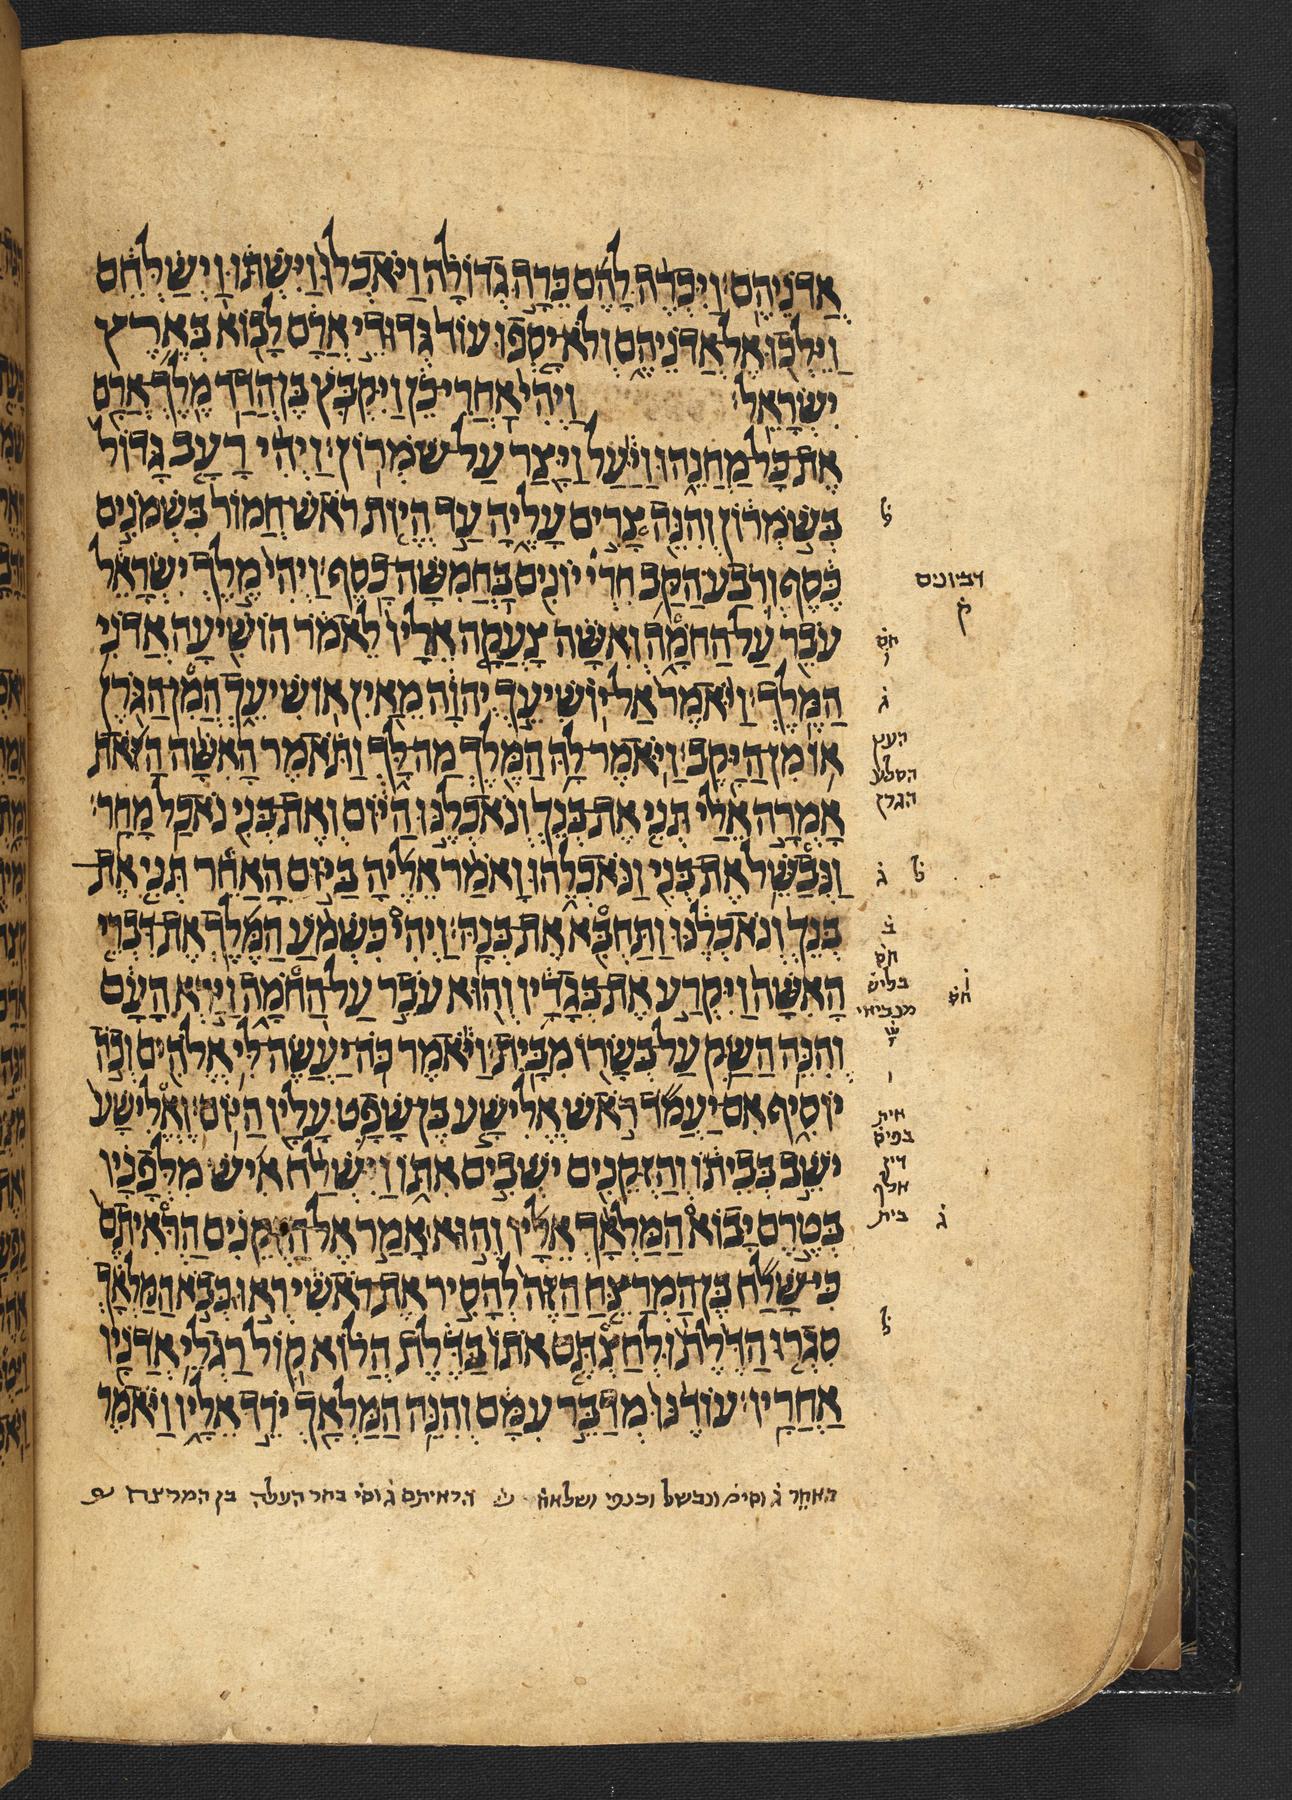 אֲדֹנֵיהֶם׃ וַיִּכְרֶה לָהֶם כֵּרָה גְדוֹלָה וַיֹּאכְלוּ וַיִּשְׁתּוּ וַיְשַׁלְּחֵם
וַיֵּלְכוּ אֶל אֲדֹנֵיהֶם וְלֹא יָסְפוּ עוֹד גְּדוּדֵי אֲרָם לָבוֹא בְּאֶרֶץ
יִשְׂרָאֵל׃ וַיְהִי אַחֲרֵי כֵן וַיִּקְבֹּץ בֶּן הֲדַד מֶלֶךְ אֲרָם
אֶת כָּל מַחֲנֵהוּ וַיַּעַל וַיָּצַר עַל שֹׁמְרוֹן׃ וַיְהִי רָעָב גָּדוֹל
בְּשֹׁמְרוֹן וְהִנֵּה צָרִים עָלֶיהָ עַד הֱיוֹת רֹאשׁ חֲמוֹר בִּשְׁמֹנִים
כֶּסֶף וְרֹבַע הַקַּב חִרְייוֹנִים בַּחֲמִשָּׁה כָסֶף׃ וַיְהִי מֶלֶךְ יִשְׂרָאֵל
עֹבֵר עַל הַחֹמָה וְאִשָּׁה צָעֲקָה אֵלָיו לֵאמֹר הוֹשִׁיעָה אֲדֹנִי
הַמֶּלֶךְ׃ וַיֹּאמֶר אַל יוֹשִׁיעֵךְ יְהוָה מֵאַיִן אוֹשִׁיעֵךְ הֲמִן הַגֹּרֶן
אוֹ מִן הַיָּקֶב׃ וַיֹּאמֶר לָהּ הַמֶּלֶךְ מַה לָּךְ וַתֹּאמֶר הָאִשָּׁה הַזֹּאת
אָמְרָה אֵלַי תְּנִי אֶת בְּנֵךְ וְנֹאכְלֶנּוּ הַיּוֹם וְאֶת בְּנִי נֹאכַל מָחָר׃
וַנְּבַשֵּׁל אֶת בְּנִי וַנֹּאכְלֵהוּ וָאֹמַר אֵלֶיהָ בַּיּוֹם הָאַחֵר תְּנִי אֶת
בְּנֵךְ וְנֹאכְלֶנּוּ וַתַּחְבִּא אֶת בְּנָהּ׃ וַיְהִי כִשְׁמֹעַ הַמֶּלֶךְ אֶת דִּבְרֵי
הָאִשָּׁה וַיִּקְרַע אֶת בְּגָדָיו וְהוּא עֹבֵר עַל הַחֹמָה וַיַּרְא הָעָם
וְהִנֵּה הַשַּׂק עַל בְּשָׂרוֹ מִבָּיִת׃ וַיֹּאמֶר כֹּה יַעֲשֶׂה לִּי אֱלֹהִים וְכֹה
יוֹסִיף אִם יַעֲמֹד רֹאשׁ אֱלִישָׁע בֶּן שָׁפָט עָלָיו הַיּוֹם׃ וֶאֱלִישָׁע
יֹשֵׁב בְּבֵיתוֹ וְהַזְּקֵנִים יֹשְׁבִים אִתּוֹ וַיִּשְׁלַח אִישׁ מִלְּפָנָיו
בְּטֶרֶם יָבוֹא הַמַּלְאָךְ אֵלָיו וְהוּא אָמַר אֶל הַזְּקֵנִים הַרְּאִיתֶם
כִּי שָׁלַח בֶּן הַמְרַצֵּחַ הַזֶּה לְהָסִיר אֶת רֹאשִׁי רְאוּ כְּבֹא הַמַּלְאָךְ
סִגְרוּ הַדֶּלֶת וּלְחַצְתֶּם אֹתוֹ בַּדֶּלֶת הֲלוֹא קוֹל רַגְלֵי אֲדֹנָיו
אַחֲרָיו׃ עוֹדֶנּוּ מְדַבֵּר עִמָּם וְהִנֵּה הַמַּלְאָךְ יֹרֵד אֵלָיו וַיֹּאמֶר
ל
דביונים
ק
חס
ו
ג
העץ
הסלע
הגרן
ל ג
ב
חס
בליש
מנביאי
ו
אית
בפיס
דין
אלף
בית
ג
ל
האחר ג וסימ ונבשל וכנפי ושלאח הראיתם ג וסי בחר העלה בן המרצח